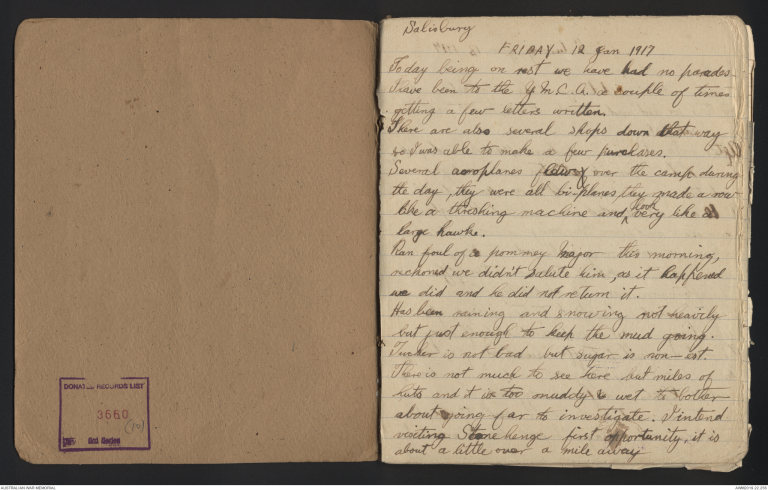 DONATED RECORDS LIST
3660
(10)
3rd Series
Salisbury
FRIDAY 12 Jan 1917
Today being on rest we have had no parades
I have been to the Y.M.C.A. a couple of times
getting a few letters written.
There are also several shops down that way
so I was able to make a few purchases.
Several aeroplanes over the camp during
the day, they were all bi-planes, they made a row
like a thrashing machine and look very like a
large hawke.
Ran foul of a pommey Major this morning,
reckoned we didn't salute him, as it happened
we did and he did not return it.
Has been raining and snowing not heavily
but just enough to keep the mud going.
Tucker is not bad but sugar is non-est.
There is not much to see here but miles of
huts and it is too muddy & wet to bother
about going far to investigate. I intend
visiting Stonehenge first opportunity, it is
about a little over a mile away
AUSTRALIAN WAR MEMORIAL